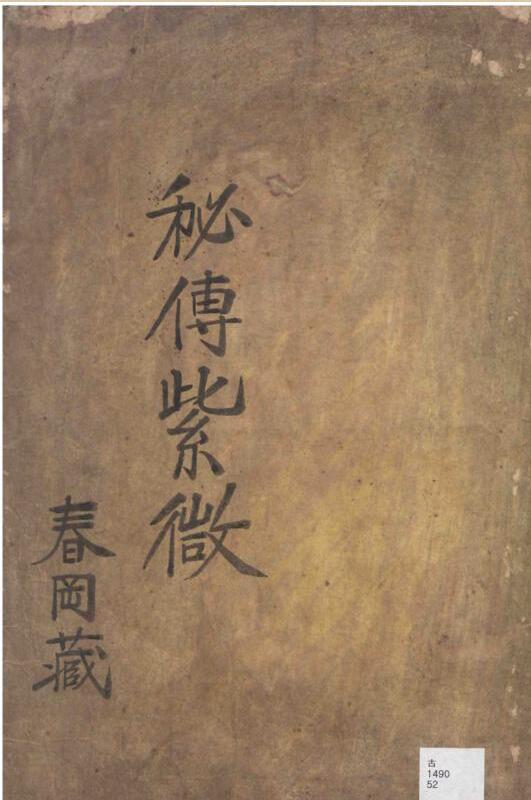 秘傳紫微
春岡藏
古
1490
52